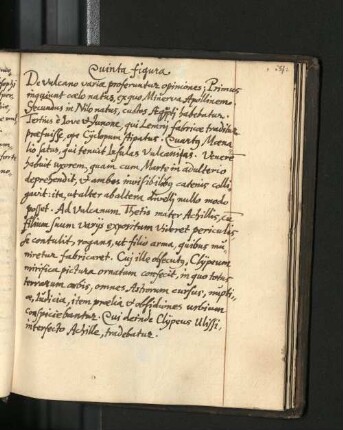 Quinta figura
De vulcano variæ proferuntur opiniones; Primus
inquiunt cœlo natus, ex quo Minerva Apollinem
Secundus in Nilo natus, custos Ægypti habebatur.
Tertius è Iove & Junone, qui Lemni fabricæ traditur
præfuisse, ope Cyclopum stipatus. Quartus Mæna
lio satus, qui tenuit Insulas Vulcanias. Venerẽ
habuit uxorem, quam cum Marte in adulterio
deprehendit, & ambos invisibilibus catenis colli
gavit: ita, ut alter ab altero divelli nullo modo
posset. Ad Vulcanum Thetis mater Achillis, cũ
filium suum varijs expositum videret periculis
se contulit, rogans, ut filio arma, quibus mu
niretur fabricaret. Cui ille obsecutus, Clypeum
mirifica pictura ornatum confecit, in quo totus
terrarum orbis, omnes Astrorum cursus, nupti
æ, Iudicia, item prælia & obsidiones urbium
conspiciebantur. Qui deinde Clypeus Ulissi,
interfecto Achille, tradebatur.